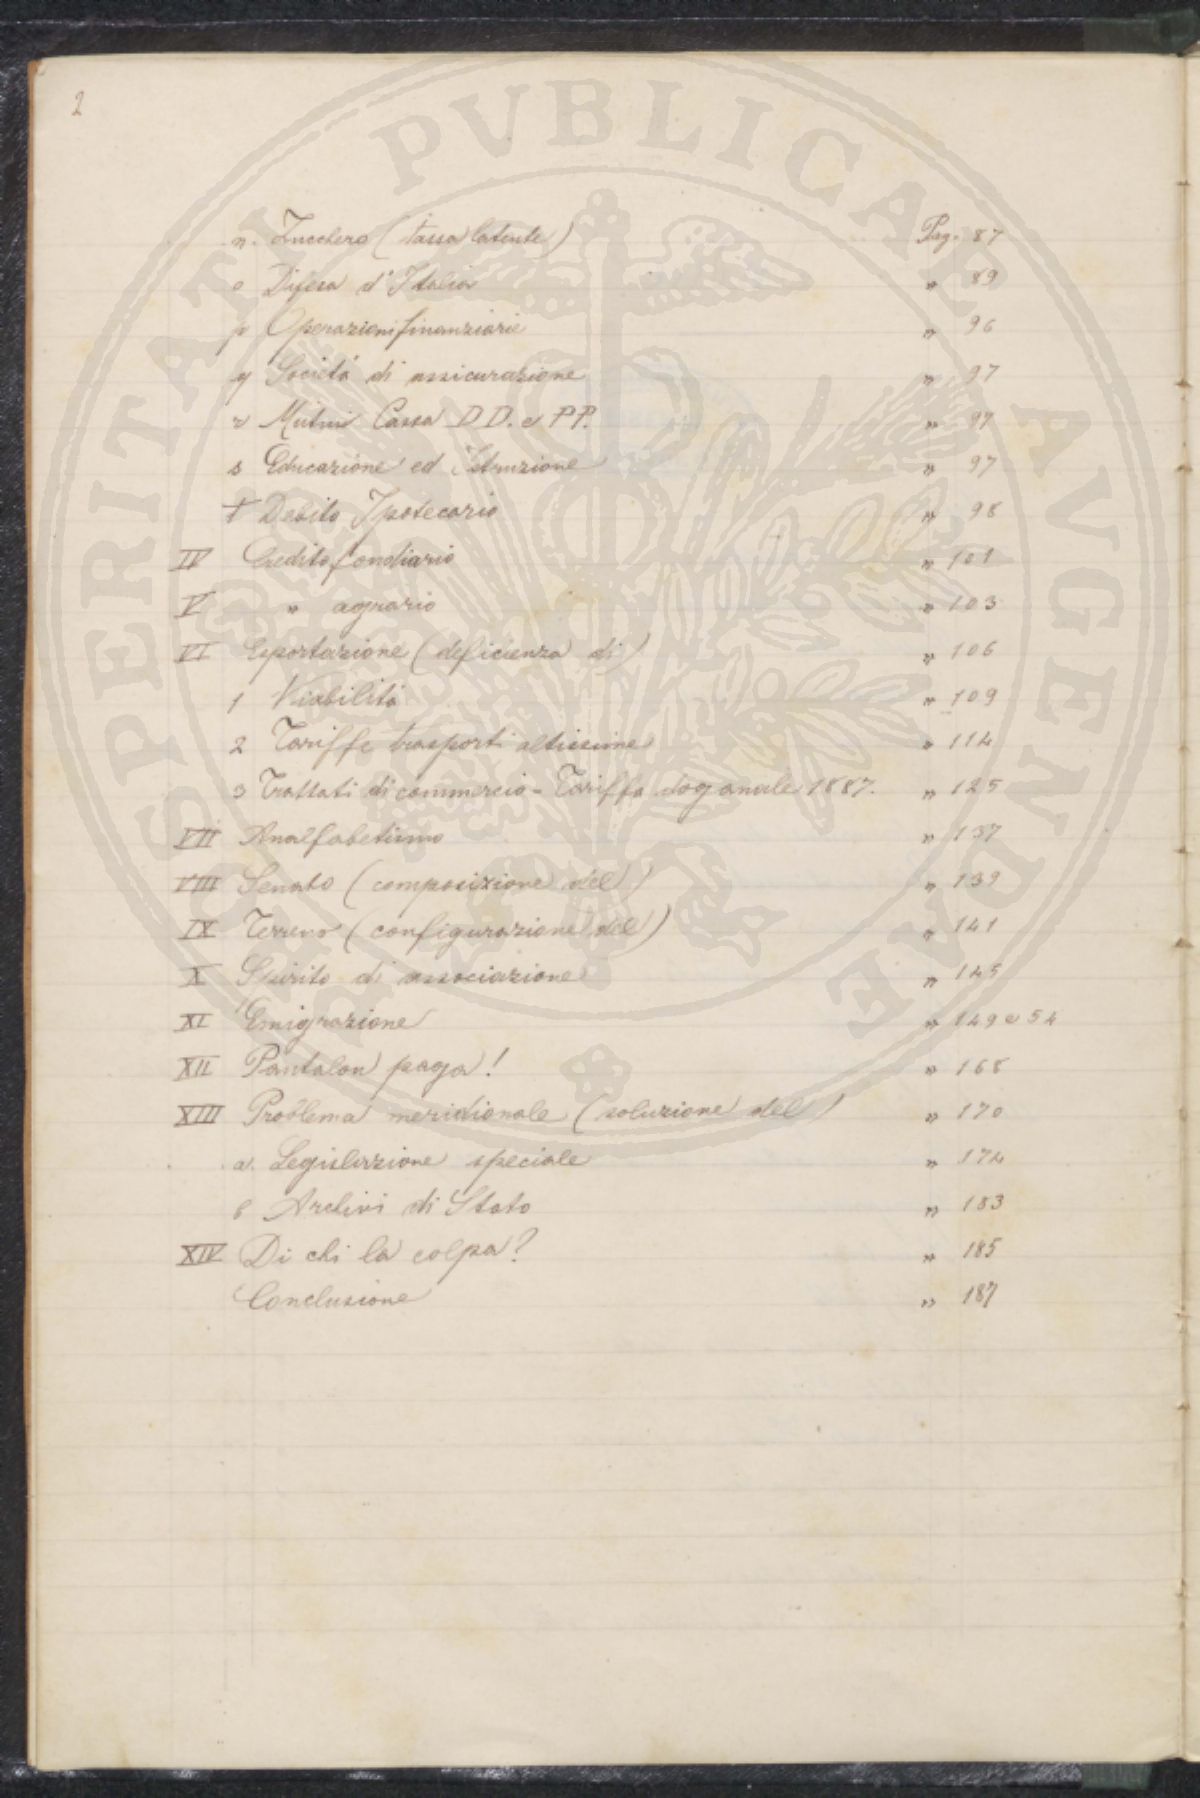 2
PROSPERITATI PVBLICAE AVGENDAE
n. Zucchero (tassa latente) Pag. 87
o Difesa d'Italia " 89
p Operazioni finanziarie " 96
q Società di assicurazione " 97
r Mutui Cassa DD. e PP. " 97
s Educazione ed Istruzione " 97
t Debito Ipotecario " 98
IV Credito fondiario " 101
V " agrario " 103
VI Esportazione (deficienza di) " 106
1 Viabilità " 109
2 Tariffe trasporti altissime " 114
3 Trattati di commercio - Tariffa doganale 1887. " 125
VII Analfabetismo " 137
VIII Senato (composizione del) " 139
IX Terreno (configurazione del) " 141
X Spirito di associazione " 145
XI Emigrazione " 149 e 54
XII Pantalon paga! " 168
XIII Problema meridionale (soluzione del) " 170
a. Legislazione speciale " 174
b Archivi di Stato " 183
XIV Di chi la colpa? " 185
Conclusione " 187